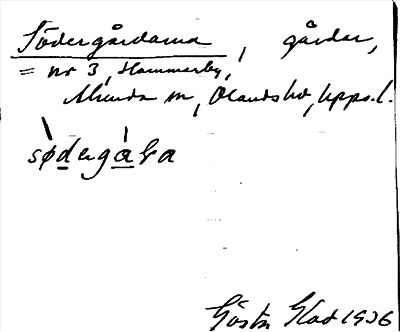 Södergårdarna, gårdar,
= nr 3, Hammarby,
Almunda sn, Olands hd, Upps. l.
södergåɽa
Gösta Glad 1936